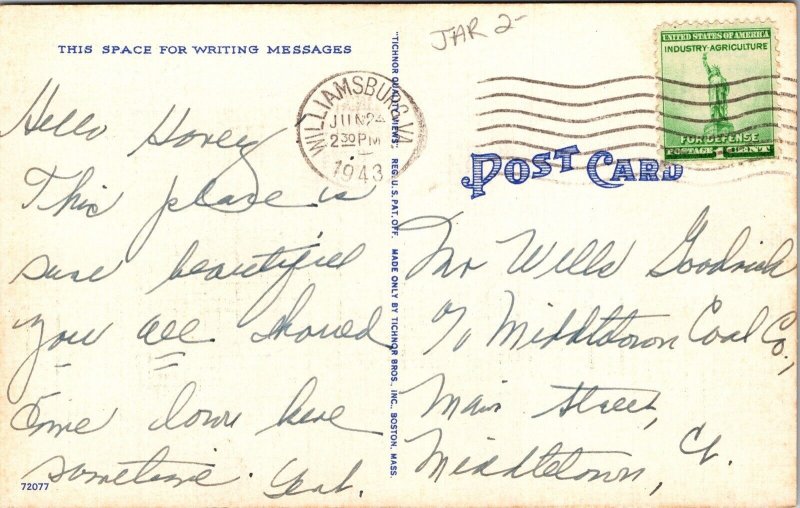 THIS SPACE FOR WRITING MESSAGES
Hello Honey
This place is
sure beautiful
you all should
come down here
sometime.
72077
"TICHNOR QUALITY VIEWS" REG. U.S. PAT. OFF. MADE ONLY BY TICHNOR BROS., INC., BOSTON, MASS.
WILLIAMSBURG, VA.
JUN 24
2 30 PM
1943
UNITED STATES OF AMERICA
INDUSTRY · AGRICULTURE
FOR DEFENSE
POSTAGE 1 CENT
POST CARD
Mr Wells Goodrich
c/o Middletown Coal Co.,
Main Street,
Middletown, Ct.